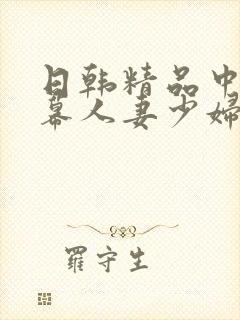 日韩精品中
幕人妻少婦
羅守生